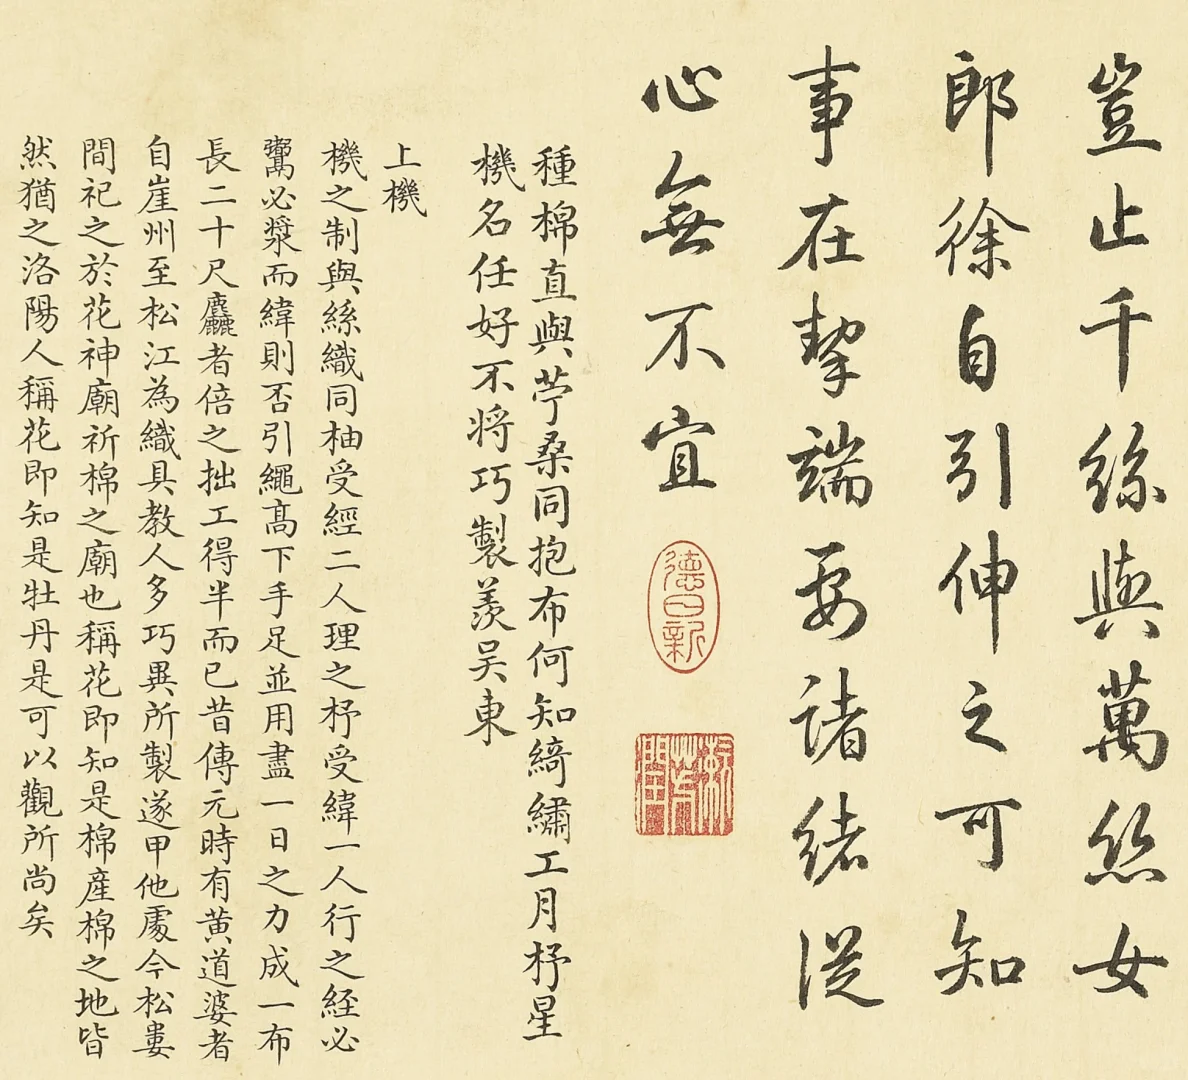 豈止千絲與萬絲女
郎徐自引伸之可知
事在挈端要諸緒從
心無不宜
德日新
漱芳潤
種棉直與苧桑同抱布何知綺繡工月杼星
機名任好不將巧製羨吳東
上機
機之制與絲織同柚受經二人理之杼受緯一人行之経必
鬻必漿而緯則否引繩髙下手足並用盡一日之力成一布
長二十尺麤者倍之拙工得半而已昔傳元時有黃道婆者
自崖州至松江為織具教人多巧異所製遂甲他處今松婁
間祀之於花神廟祈棉之廟也稱花即知是棉產棉之地皆
然猶之洛陽人稱花即知是牡丹是可以觀所尚矣